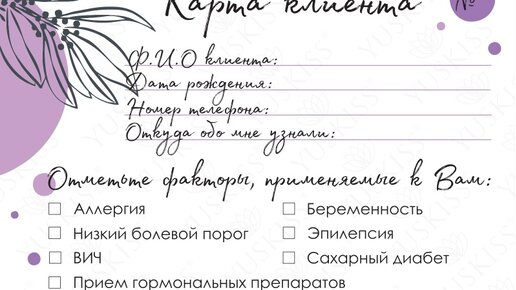 Карта клиента №
Ф.И.О клиента:
Дата рождения:
Номер телефона:
Откуда обо мне узнали:
Отметьте факторы, применяемые к Вам:
Аллергия Беременность
Низкий болевой порог Эпилепсия
ВИЧ Сахарный диабет
Прием гормональных препаратов